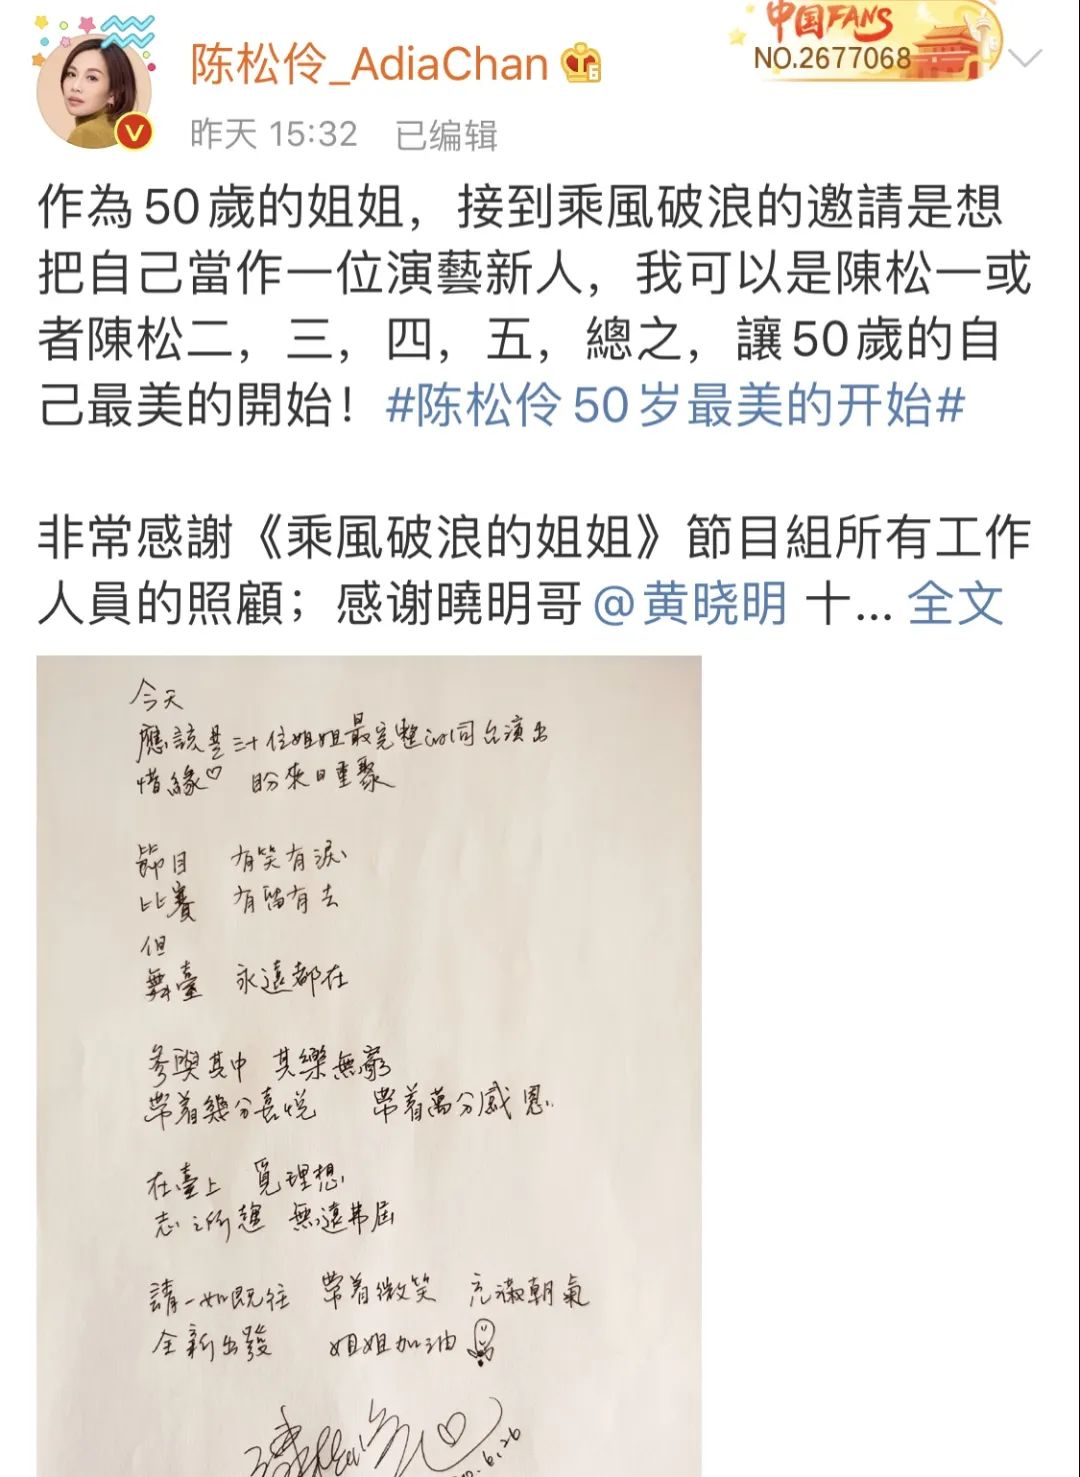 中国FANS
NO.2677068
陈松伶_AdiaChan
昨天 15:32 已编辑
作為50歲的姐姐，接到乘風破浪的邀請是想
把自己當作一位演藝新人，我可以是陳松一或
者陳松二，三，四，五，總之，讓50歲的自
己最美的開始！#陈松伶50岁最美的开始#
非常感謝《乘風破浪的姐姐》節目組所有工作
人員的照顧；感谢曉明哥@黄晓明 十... 全文
今天
應該是三十位姐姐最完整的同台演出
惜緣♡ 盼來日重聚
節目 有笑有淚
比賽 有留有去
但
舞臺 永遠都在
參與其中 其樂無窮
帶着幾分喜悅 帶着萬分感恩
在臺上 覓理想
志之所趨 無遠弗屆
請一如既往 帶着微笑 充滿朝氣
全新出發 姐姐加油
陳松伶
6.26